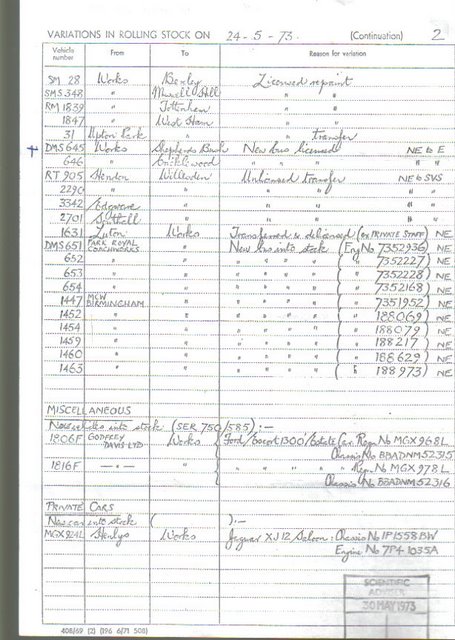 VARIATIONS IN ROLLING STOCK ON 24-5-73. (Continuation) 2
Vehicle number From To Reason for variation
SM 28 Works Bexley Licensed repaint
SMS 348 " Muswell Hill " "
RM 1839 " Tottenham " "
1847 " West Ham " "
31 Upton Park " " transfer
DMS 645 Works Shepherds Bush New bus licensed NE to E
646 " " " " "
RT 905 Hendon Willesden Unlicensed transfer NE to SVS
2290 " " " " " "
3342 Edgware " " " "
2701 Southall " " "
1631 Luton Works Transferred & delicensed (ex PRIVATE STAFF) NE
DMS 651 PARK ROYAL COACHWORKS " New bus into stock (Eng No 7352936) NE
652 " " " " " " ( " 7352227) NE
653 " " " " " " ( " 7352228) NE
654 " " " " " " ( " 7352168) NE
1447 MCW BIRMINGHAM " " " " " ( " 7351952) NE
1452 " " " " " " ( " 188069) NE
1454 " " " " " " ( " 188079) NE
1459 " " " " " " ( " 188217) NE
1460 " " " " " " ( " 188629) NE
1463 " " " " " " ( " 188973) NE
MISCELLANEOUS
New vehicles into stock (SER 750/585):-
1806F GODFREY DAVIS LTD Works Ford Escort 1300 Estate Car Regn. No MGX 968L
Chassis No BBADNM 52315
1816F — " — " " " " " Regn. No MGX 978L
Chassis No BBADNM 52316
PRIVATE CARS
New car into stock ( ):-
MGX 924L Henlys Works Jaguar XJ12 Saloon: Chassis No 1P1558BW
Engine No 7P4 1035A
SCIENTIFIC
ADVISER
30 MAY 1973
408/59 (2) (196 6/71 508)